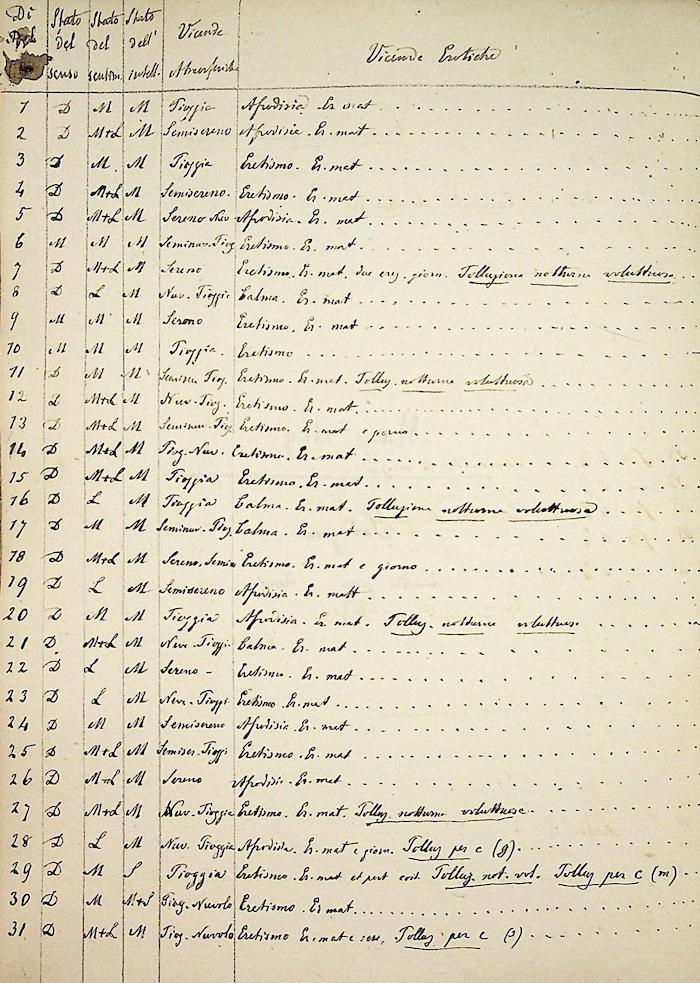 Di Stato Stato Stato Vicende Vicende Erotiche
del del dell'
senso sentim. intell. Atmosferiche
1 D M M Pioggia Afrodisia Er. mat
2 D M+L M Semisereno Afrodisia. Er. mat
3 D M M Pioggia Eretismo. Er. mat
4 D M+L M Semisereno. Eretismo. Er. mat
5 D M+L M Sereno Nuv Afrodisia. Er. mat
6 M M M Seminuv. Piog Eretismo. Er. mat
7 D M+L M Sereno Eretismo. Er. mat, due erez. giorn. Polluzione notturna voluttuosa
8 D L M Nuv. Pioggia Calma. Er. mat
9 M M M Sereno Eretismo. Er. mat
10 M M M Pioggia. Eretismo
11 D M M Seminu Piog. Eretismo. Er. mat. Polluz. notturna voluttuosa
12 D M+L M Nuv. Piog. Eretismo. Er. mat
13 D M+L M Seminuv. Piog Eretismo. Er. mat e giorno
14 D M+L M Piog. Nuv. Eretismo. Er. mat
15 D M+L M Pioggia Eretismo. Er. mat
16 D L M Pioggia Calma. Er. mat. Polluzione notturna voluttuosa
17 D M M Seminuv. Piog. Calma. Er. mat
18 D M+L M Sereno. Semin Eretismo. Er. mat e giorno
19 D L M Semisereno Afrodisia. Er. matt
20 D M M Pioggia Afrodisia. Er. mat. Polluz. notturna voluttuosa
21 D M+L M Nuv. Pioggi Calma. Er. mat
22 D L M Sereno - Eretismo. Er. mat
23 D L M Nuv. Pioggi Eretismo Er. mat
24 D M M Semisereno Afrodisia. Er. mat
25 D M+L M Semiser. Pioggi Eretismo. Er. mat
26 D M+L M Sereno Afrodis. Er. mat
27 D M+L M Nuv. Pioggia Eretismo. Er. mat. Polluz. notturna voluttuosa
28 D L M Nuv. Pioggia Afrodisia. Er. mat e giorn. Polluz per c (g).
29 D M S Pioggia Eretismo. Er. mat et post Polluz. not. vol. Polluz per c (m)
30 D M M+S Piog. Nuvolo Eretismo. Er. mat
31 D M+L M Piog. Nuvolo Eretismo Er. mat e Polluz per c